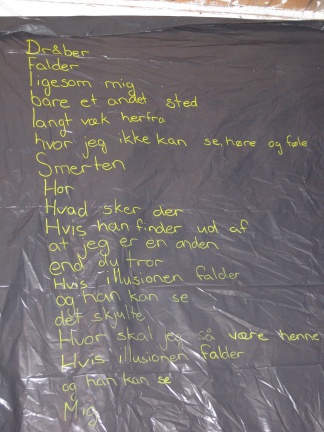 Dråber
Falder
ligesom mig
bare et andet sted
langt væk herfra
hvor jeg ikke kan se, høre og føle
Smerten
Hor
Hvad sker der
Hvis han finder ud af
at jeg er en anden
end du tror
Hvis illusionen falder
og han kan se
det skjulte
Hvor skal jeg så være henne
Hvis illusionen falder
og han kan se
Mig